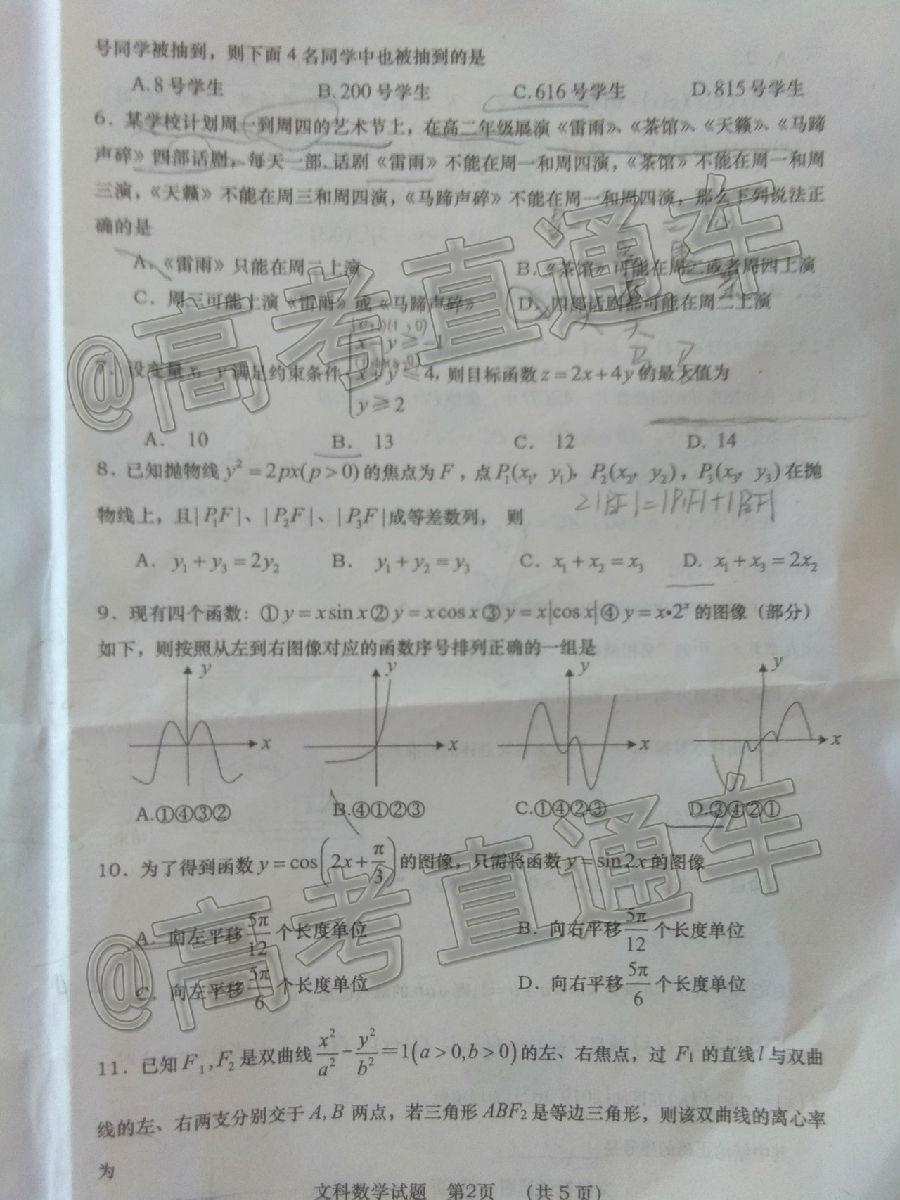 号同学被抽到，则下面4名同学中也被抽到的是
A.8号学生 B.200号学生 C.616号学生 D.815号学生
6．某学校计划周一到周四的艺术节上，在高二年级展演《雷雨》、《茶馆》、《天籁》、《马蹄
声碎》四部话剧，每天一部．话剧《雷雨》不能在周一和周四演，《茶馆》不能在周一和周
三演，《天籁》不能在周三和周四演，《马蹄声碎》不能在周一和周四演，那么下列说法正
确的是
A．《雷雨》只能在周二上演 B．《茶馆》可能在周二或者周四上演
C．周三可能上演《雷雨》或《马蹄声碎》 D．四部话剧都可能在周二上演
7．设变量x，y满足约束条件 { x－y≥－1 x＋y≤4, y≥2 则目标函数z＝2x＋4y的最大值为
A． 10 B． 13 C． 12 D．14
8．已知抛物线y²＝2px(p＞0)的焦点为F，点P₁(x₁, y₁), P₂(x₂, y₂), P₃(x₃, y₃)在抛
2|P₂F|=|P₁F|+|P₃F|
物线上，且|P₁F|、|P₂F|、|P₃F|成等差数列， 则
A． y₁＋y₃＝2y₂ B． y₁＋y₂＝y₃ C．x₁＋x₂＝x₃ D．x₁＋x₃＝2x₂
9．现有四个函数：①y＝x sin x②y＝x cos x③y＝x|cos x|④y＝x•2ˣ的图像（部分）
如下，则按照从左到右图像对应的函数序号排列正确的一组是
y y y y
x x x x
A.①④③② B.④①②③ C.①④②③ D.③④②①
10．为了得到函数y＝cos(2x＋π/3)的图像，只需将函数y＝sin2x的图像
A．向左平移5π/12个长度单位 B．向右平移5π/12个长度单位
C．向左平移5π/6个长度单位 D．向右平移5π/6个长度单位
11．已知F₁,F₂是双曲线x²/a²－y²/b²＝1(a＞0,b＞0)的左、右焦点，过F₁的直线l与双曲
线的左、右两支分别交于A,B两点，若三角形ABF₂是等边三角形，则该双曲线的离心率
为
文科数学试题 第2页 （共5页）
@高考直通车
@高考直通车